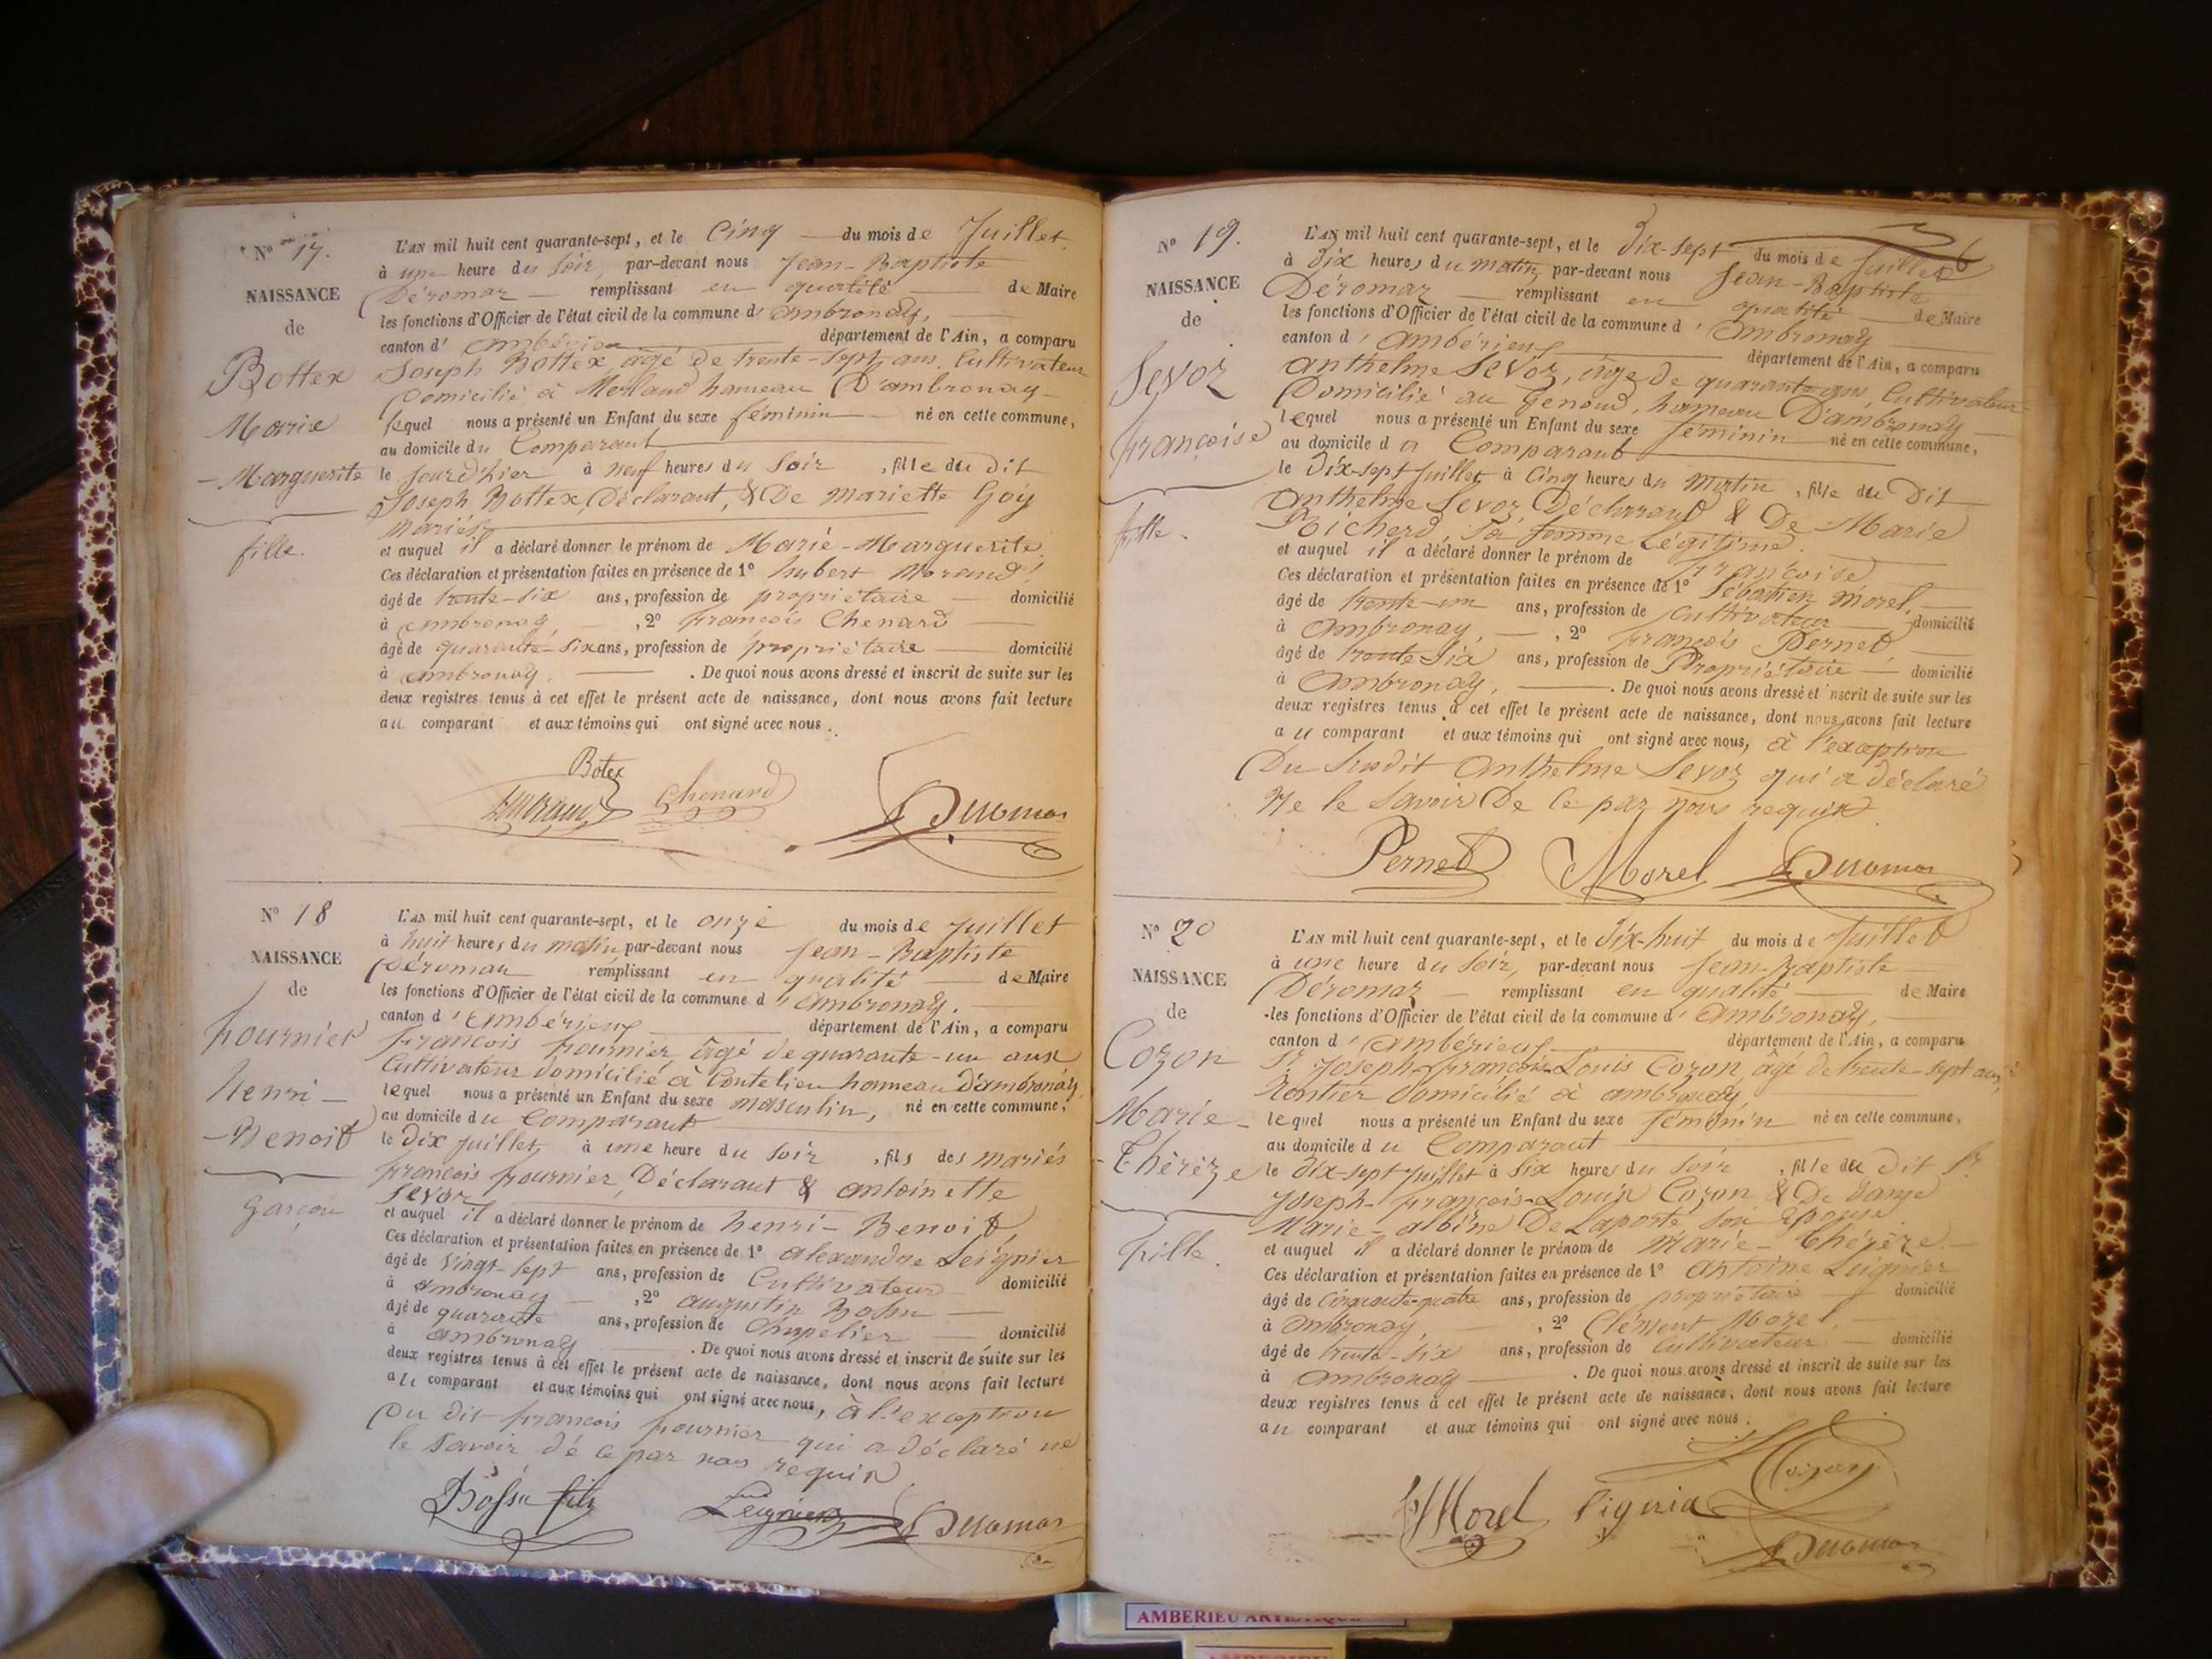 N° 17.
NAISSANCE
de
Bottex
Marie
-Marguerite
fille.
L'AN mil huit cent quarante-sept, et le Cinq du mois de Juillet
à une heure du Soir, par-devant nous Jean-Baptiste
Déromaz remplissant en qualité de Maire
les fonctions d'Officier de l'état civil de la commune d'ambronay,
canton d' département de l'Ain, a comparu
Joseph Bottex, agé de trente-sept ans, Cultivateur
Domicilié à hameau D'ambronay
lequel nous a présenté un Enfant du sexe féminin né en cette commune,
au domicile du Comparant
le jour d'hier à neuf heures du Soir, fille du dit
Joseph Bottex, Déclarant, & De Mariette Goy
Mariés
et auquel il a déclaré donner le prénom de Marie-Marguerite.
Ces déclaration et présentation faites en présence de 1° hubert Morand,
âgé de trente-six ans, profession de propriétaire domicilié
à ambronay, 2° françois Chenard
âgé de quarante-six ans, profession de propriétaire domicilié
à ambronay. De quoi nous avons dressé et inscrit de suite sur les
deux registres tenus à cet effet le présent acte de naissance, dont nous avons fait lecture
au comparant et aux témoins qui ont signé avec nous.
Botex
Chenard
Deromas
N° 18
NAISSANCE
de
fournier
Henri-
-Benoit
Garçon
L'AN mil huit cent quarante-sept, et le onze du mois de Juillet
à huit heures du matin, par-devant nous Jean-Baptiste
Déromaz remplissant en qualité de Maire
les fonctions d'Officier de l'état civil de la commune d'ambronay.
canton d'ambérieux département de l'Ain, a comparu
françois fournier, âgé de quarante-un ans
Cultivateur domicilié à Coutelieu hameau d'ambronay,
lequel nous a présenté un Enfant du sexe masculin, né en cette commune,
au domicile du Comparant
le dix Juillet, à une heure du Soir, fils des mariés
françois fournier, Déclarant & antoinette
Sevoz
et auquel il a déclaré donner le prénom de henri-Benoit,
Ces déclaration et présentation faites en présence de 1° alexandre Leignier
âgé de Vingt-sept ans, profession de Cultivateur domicilié
à ambronay, 2° augustin
âgé de quarante ans, profession de Chapelier domicilié
à ambronay. De quoi nous avons dressé et inscrit de suite sur les
deux registres tenus à cet effet le présent acte de naissance, dont nous avons fait lecture
au comparant et aux témoins qui ont signé avec nous, à l'exception
Du dit françois fournier qui a déclaré ne
le Savoir de ce par nous requis
fils
Leignier
Deromas
N° 19.
NAISSANCE
de
Sevoz
françoise
fille.
L'AN mil huit cent quarante-sept, et le Dix-Sept du mois de Juillet
à Dix heures du matin, par-devant nous Jean-Baptiste
Déromaz remplissant en qualité de Maire
les fonctions d'Officier de l'état civil de la commune d'ambronay
canton d'ambérieux département de l'Ain, a comparu
anthelme Sevoz, âgé de quarante ans, Cultivateur
Domicilié au Genoud, hameau D'ambronay
lequel nous a présenté un Enfant du sexe féminin né en cette commune,
au domicile du Comparant
le Dix-sept Juillet, à Cinq heures du Matin, fille du Dit
anthelme Sevoz, Déclarant & De Marie
Sa femme Légitime.
et auquel il a déclaré donner le prénom de françoise
Ces déclaration et présentation faites en présence de 1° Sébatien Morel,
âgé de trente-un ans, profession de Cultivateur domicilié
à Ambronay, 2° françois Pernet
âgé de trente Six ans, profession de Propriétaire domicilié
à Ambronay. De quoi nous avons dressé et inscrit de suite sur les
deux registres tenus à cet effet le présent acte de naissance, dont nous avons fait lecture
au comparant et aux témoins qui ont signé avec nous, à l'exception
Du Susdit Anthelme Sevoz qui a déclaré
Ne le Savoir De ce par nous requis
Pernet
Morel
Deromas
N° 20
NAISSANCE
de
Cozon
Marie-
-Thérèze
fille.
L'AN mil huit cent quarante-sept, et le Dix-huit du mois de Juillet
à une heure du Soir, par-devant nous Jean-Baptiste
Déromaz remplissant en qualité de Maire
les fonctions d'Officier de l'état civil de la commune d'Ambronay,
canton d'ambérieux département de l'Ain, a comparu
Sr Joseph-françois-Louis Cozon, âgé de trente-sept ans,
Rentier domicilié à ambronay,
lequel nous a présenté un Enfant du sexe féminin né en cette commune,
au domicile du Comparant
le Dix-sept Juillet à Six heures du Soir, fille du dit Sr
Joseph-françois-Louis Cozon & De Dame
Marie-albine De Laporte, Son Epouse
et auquel il a déclaré donner le prénom de Marie-Thérèze.
Ces déclaration et présentation faites en présence de 1° Antoine Leignier
âgé de Cinquante-quatre ans, profession de propriétaire domicilié
à Ambronay, 2° Clément Morel,
âgé de trente-six ans, profession de Cultivateur domicilié
à Ambronay. De quoi nous avons dressé et inscrit de suite sur les
deux registres tenus à cet effet le présent acte de naissance, dont nous avons fait lecture
au comparant et aux témoins qui ont signé avec nous.
Morel
Deromas
AMBERIEU ARTISTIQUE
AMBERIEU